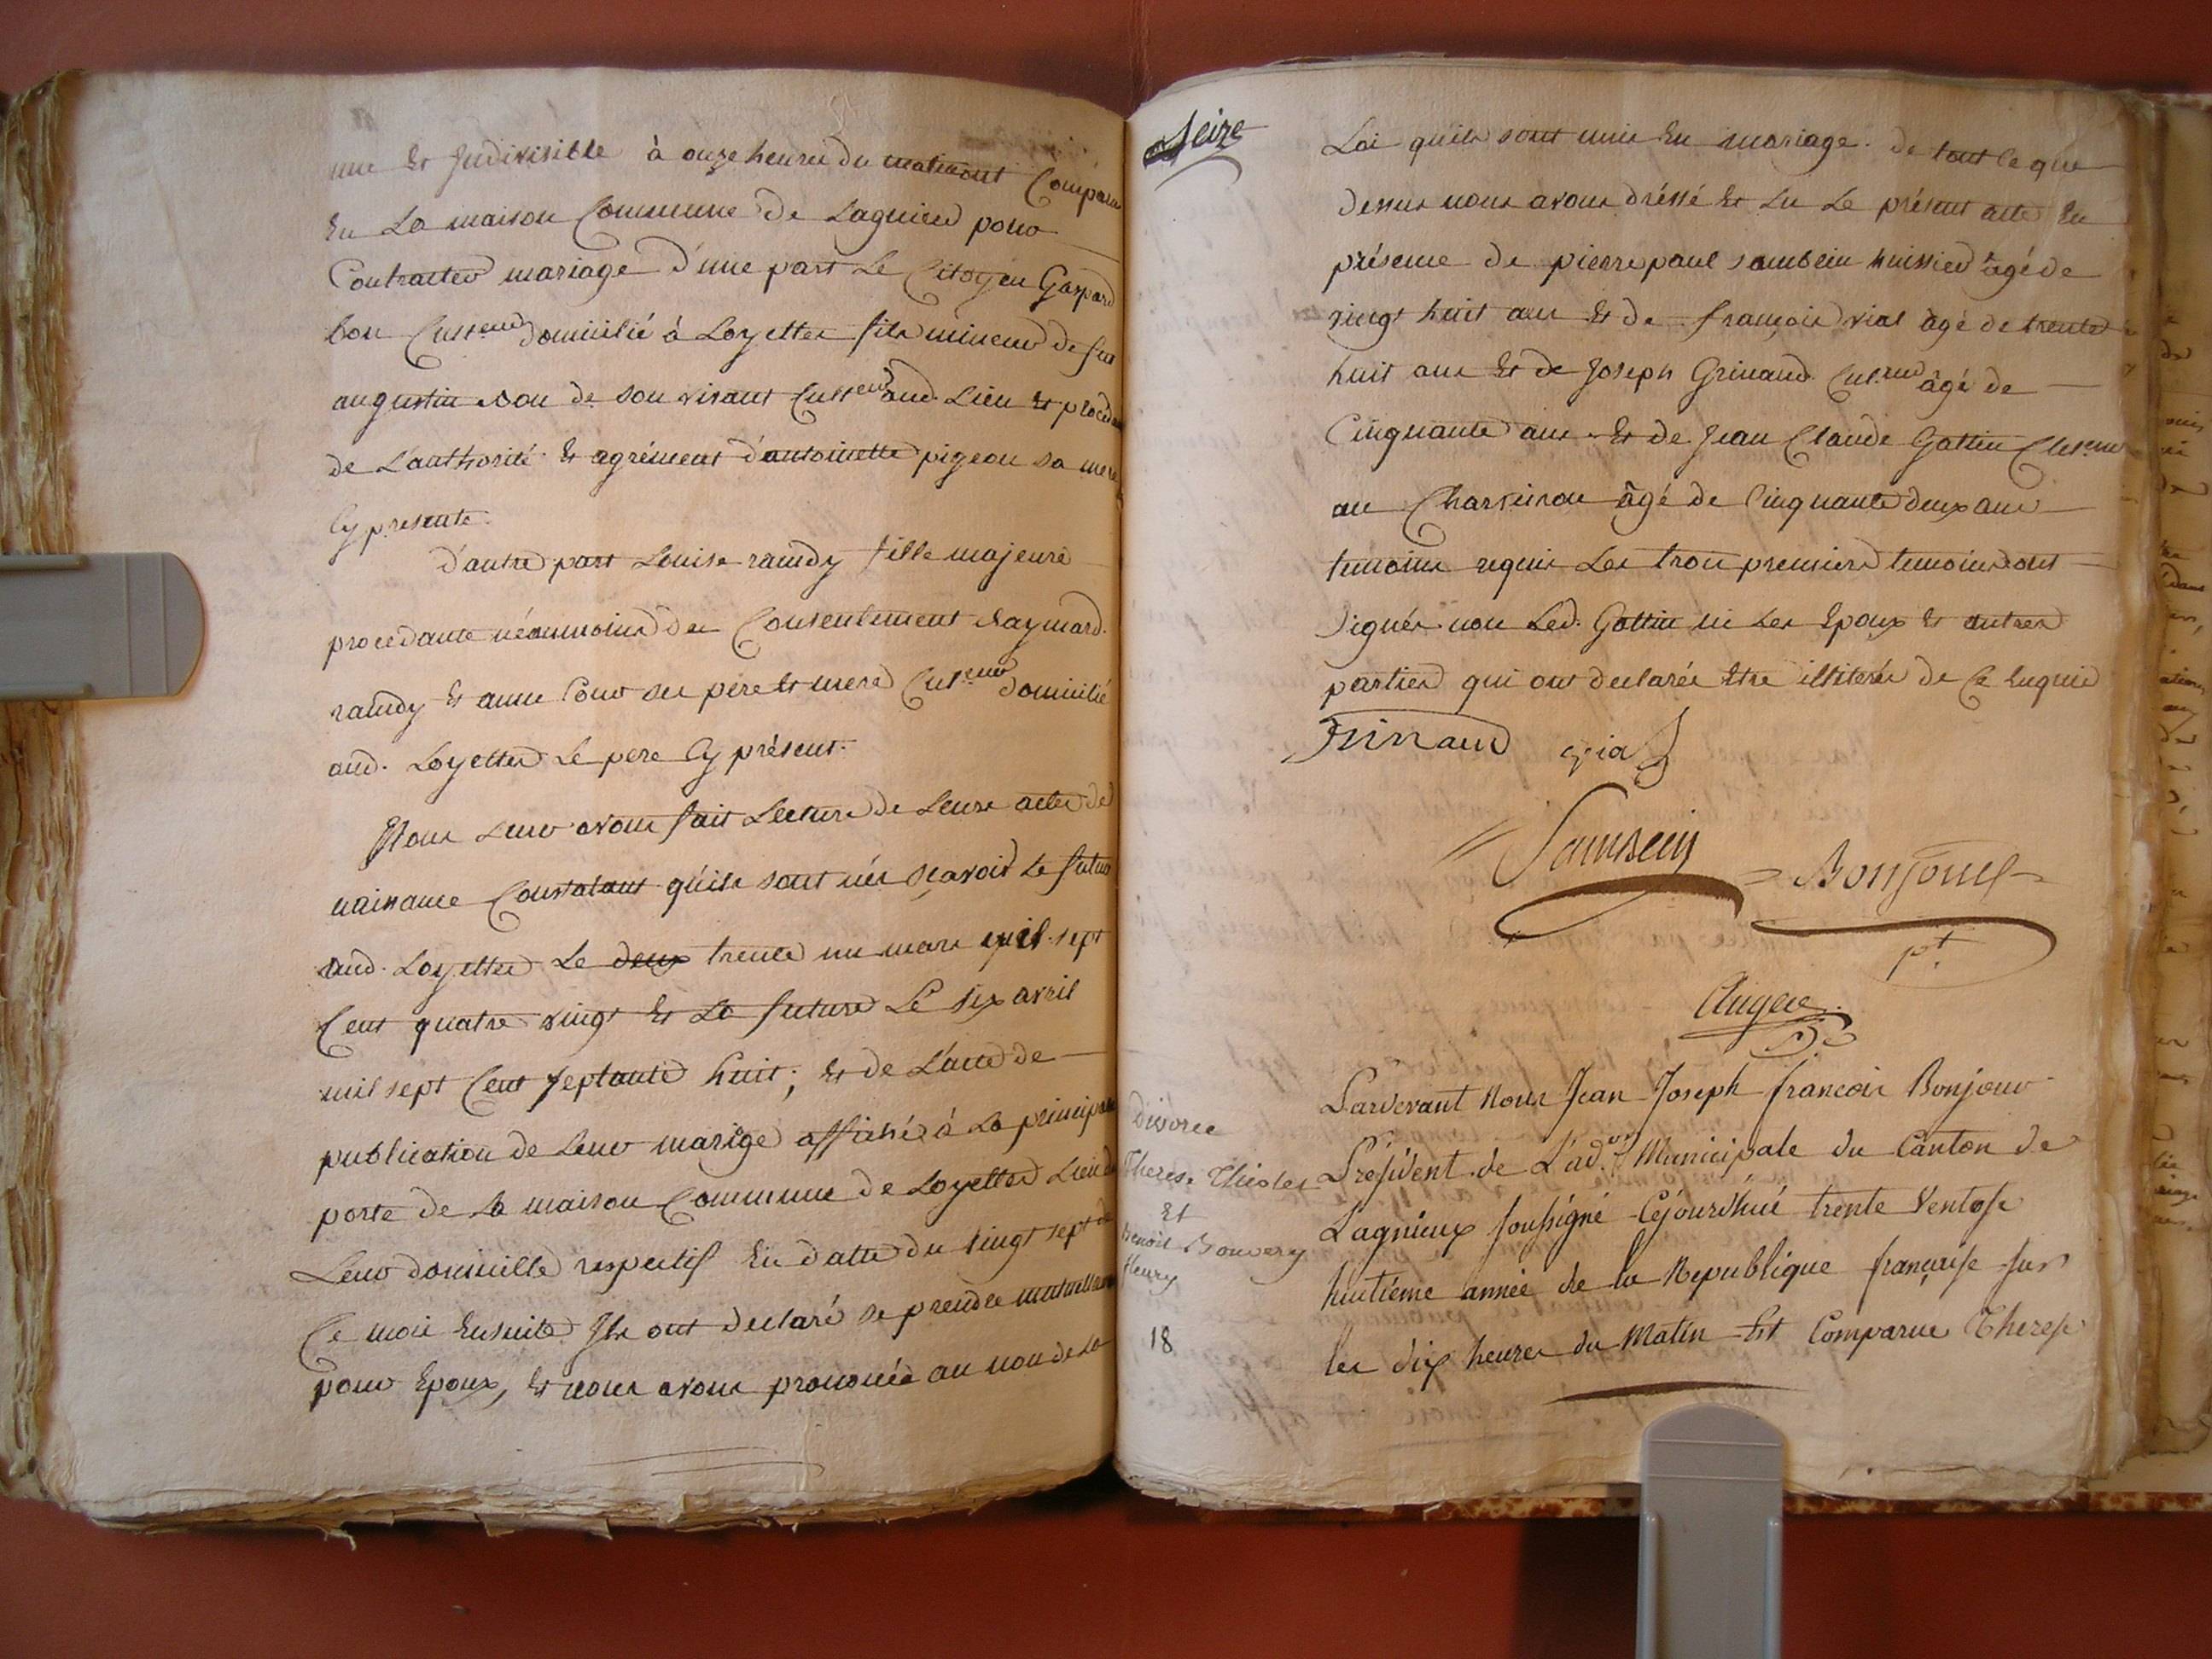 une Et Indivisible à onze heures du matin ont Comparus
En La maison Commune de Lagnieu pour
Contracter mariage d'une part Le Citoyen Gaspard
bon Cult.eur domicilié à Loyettes fils mineur de feu
augustin Bon de son vivant Cult.eur aud. Lieu Et procédant
de L'authorité Et agrément d'antoinette pigeon sa mere
Cy presente.
D'autre part Louise ramdy fille majeure
procedante néanmoins du Consentement Raymard
ramdy Et anne Cour ses père Et mere Cult.eur domicilié
aud. Loyettes Le pere Cy présent.
Nous Leur avons fait Lecture de Leurs actes de
naissance Constatant quils sont nés sçavoir Le futur
aud. Loyettes Le deux trente un mars mil sept
Cent quatre vingt Et La future Le six avril
mil sept Cent septante huit, Et de L'acte de
publication de Leur mariage affiché à La principale
porte de La maison Commune de Loyettes Lieu de
Leur domicille respectif En datte du vingt sept de
Ce mois Ensuite Ils ont declaré se prendre mutuellement
pour Epoux, Et nous avons prononcé au nom de La
Seize
Loi quils sont unis En mariage. de tout ce que
dessus nous avons dréssé Et Lu Le présent acte En
présence de pierre paul sambein huissier âgé de
vingt huit ans Et de françois vial âgé de trente
huit ans Et de Joseph Grinaud Cult.eur âgé de
Cinquante ans Et de Jean Claude Gottin Cult.eur
au Charvinou âgé de Cinquante deux ans
temoins requis Les trois premiers temoins ont
signés non Led. Gottin ni Les Epoux Et autres
parties qui ont declarés Etre illiterés de Ce Enquis
Grinaud vial
Sambein
Bonjour
pt.
Auger
Divorce
Therese Thiolet
Et
Benoit Bouvery
fleury
18
Pardevant Nous Jean Joseph francois Bonjour
President de L'ad.on Municipale du Canton de
Lagnieux soussigné Cejourdhui trente Ventose
huitième année de la Republique française sur
les dix heures du Matin Est Comparue Therese